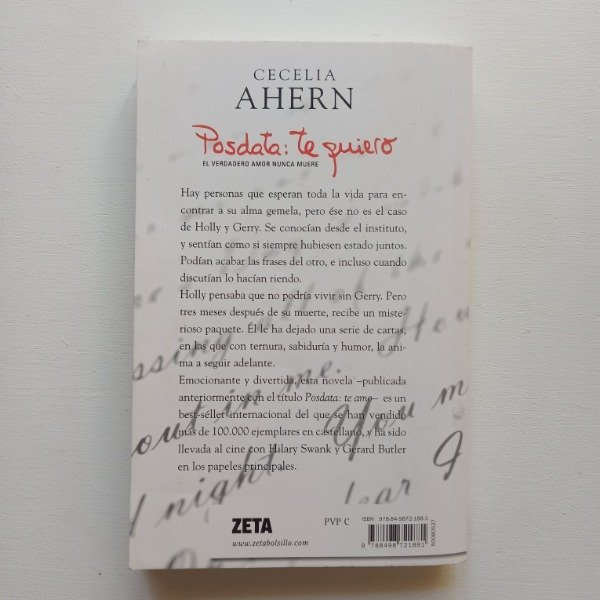 CECELIA
AHERN
Posdata: te quiero
EL VERDADERO AMOR NUNCA MUERE
Hay personas que esperan toda la vida para en-
contrar a su alma gemela, pero ése no es el caso
de Holly y Gerry. Se conocían desde el instituto,
y sentían como si siempre hubiesen estado juntos.
Podían acabar las frases del otro, e incluso cuando
discutían lo hacían riendo.
Holly pensaba que no podría vivir sin Gerry. Pero
tres meses después de su muerte, recibe un miste-
rioso paquete. Él le ha dejado una serie de cartas,
en las que con ternura, sabiduría y humor, la ani-
ma a seguir adelante.
Emocionante y divertida, esta novela –publicada
anteriormente con el título Posdata: te amo– es un
best-séller internacional del que se han vendido
más de 100.000 ejemplares en castellano, y ha sido
llevada al cine con Hilary Swank y Gerard Butler
en los papeles principales.
in me.
You m
night
ear I
ZETA
www.zetabolsillo.com
PVP C
ISBN 978-84-9872-188-1
9 788498 721881